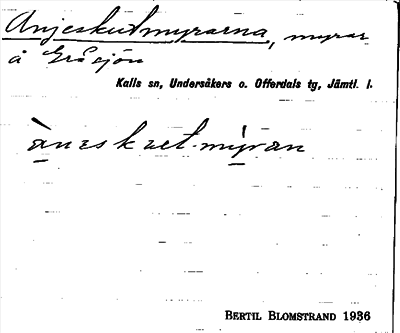 Anjeskutmyrarna, myrar
å Gråsjön
Kalls sn, Undersåkers o. Offerdals tg, Jämtl. l.
àneskuet-mỳran
BERTIL BLOMSTRAND 1936